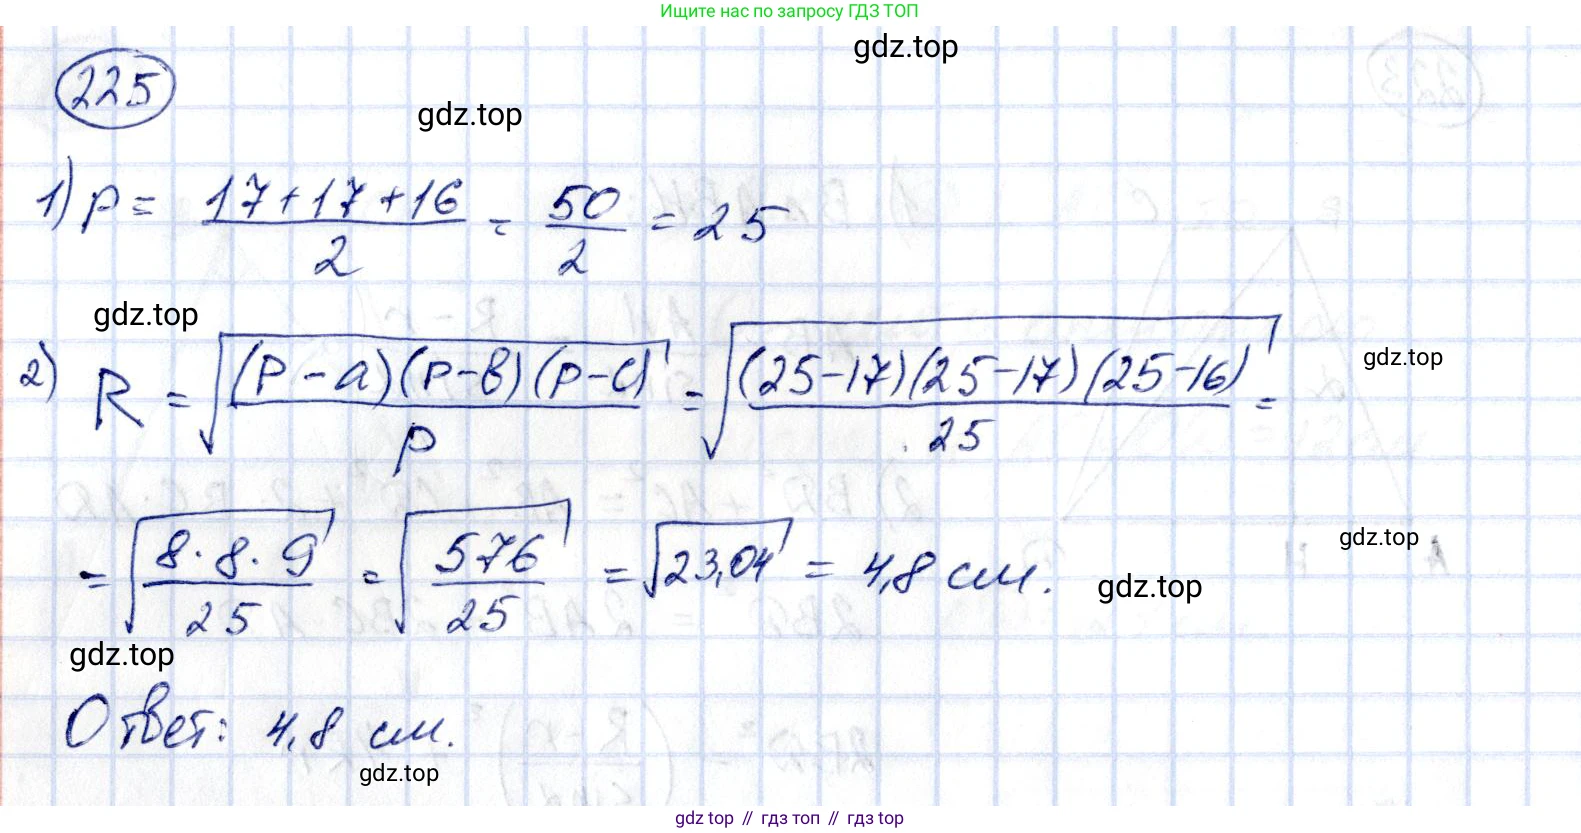 Ищите нас по запросу ГДЗ ТОП
gdz.top
225
gdz.top
1) p = (17+17+16)/2 = 50/2 = 25
gdz.top
2) R = √((p-a)(p-в)(p-c)/p) = √((25-17)(25-17)(25-16)/25) =
gdz.top
= √(8·8·9/25) = √(576/25) = √23,04 = 4,8 см.
gdz.top
gdz.top
gdz.top
Ответ: 4,8 см.
gdz.top
gdz.top // гдз топ // гдз top